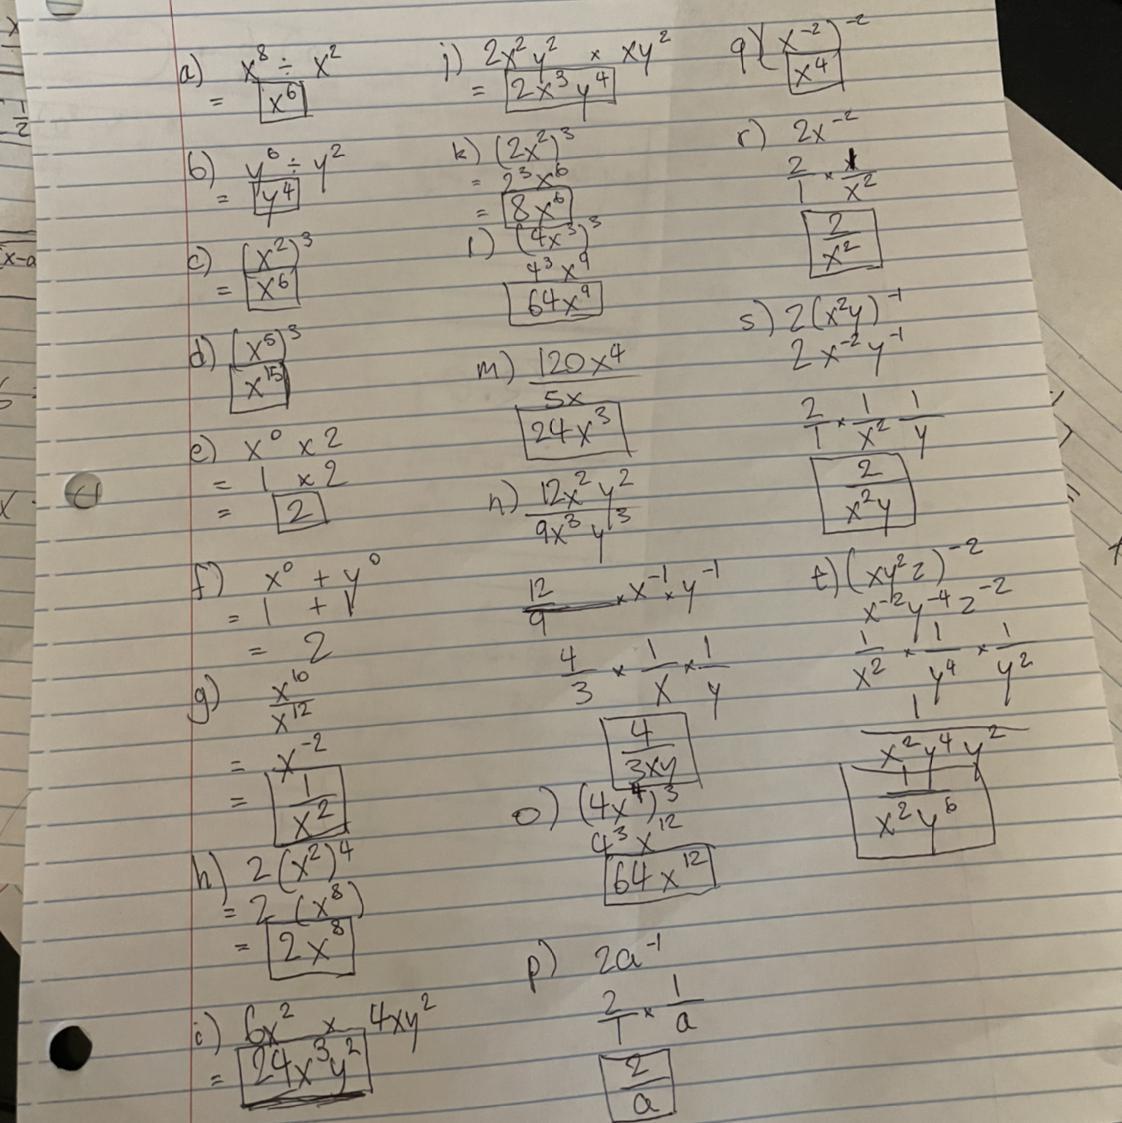 a) x⁸ ÷ x²
= x⁶
b) y⁶ ÷ y²
= y⁴
c) (x²)³
= x⁶
d) (x⁵)³
x¹⁵
e) x⁰ x 2
= 1 x 2
= 2
f) x⁰ + y⁰
= 1 + 1
= 2
g) x¹⁰/x¹²
= x⁻²
= 1/x²
h) 2(x²)⁴
= 2 (x⁸)
= 2x⁸
i) 6x² x 4xy²
= 24x³y²
j) 2x²y² x xy²
= 2x³y⁴
k) (2x²)³
= 2³x⁶
= 8x⁶
l) (4x³)³
4³x⁹
64x⁹
m) 120x⁴/5x
24x³
n) 12x²y²/9x³y³
12/9 x x⁻¹ x y⁻¹
4/3 x 1/x x 1/y
4/3xy
o) (4x⁴)³
4³x¹²
64x¹²
p) 2a⁻¹
2/1 x 1/a
2/a
q) (x⁻²)⁻²
x⁴
r) 2x⁻²
2/1 x 1/x²
2/x²
s) 2(x²y)⁻¹
2x⁻²y⁻¹
2/1 x 1/x² 1/y
2/x²y
t) (xy²z)⁻²
x⁻²y⁻⁴z⁻²
1/x² x 1/y⁴ x 1/y²
1/x²y⁴y²
1/x²y⁶